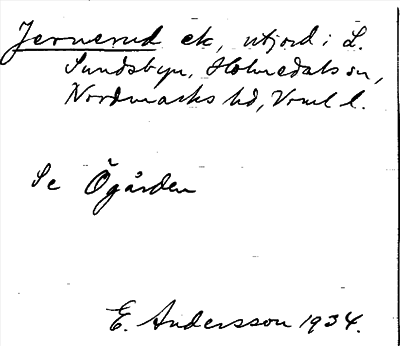 Jernerud ek, utjord i L.
Sundsbyn, Holmedals sn,
Nordmarks hd, Vrml l.
Se Ögården
E. Andersson 1934.